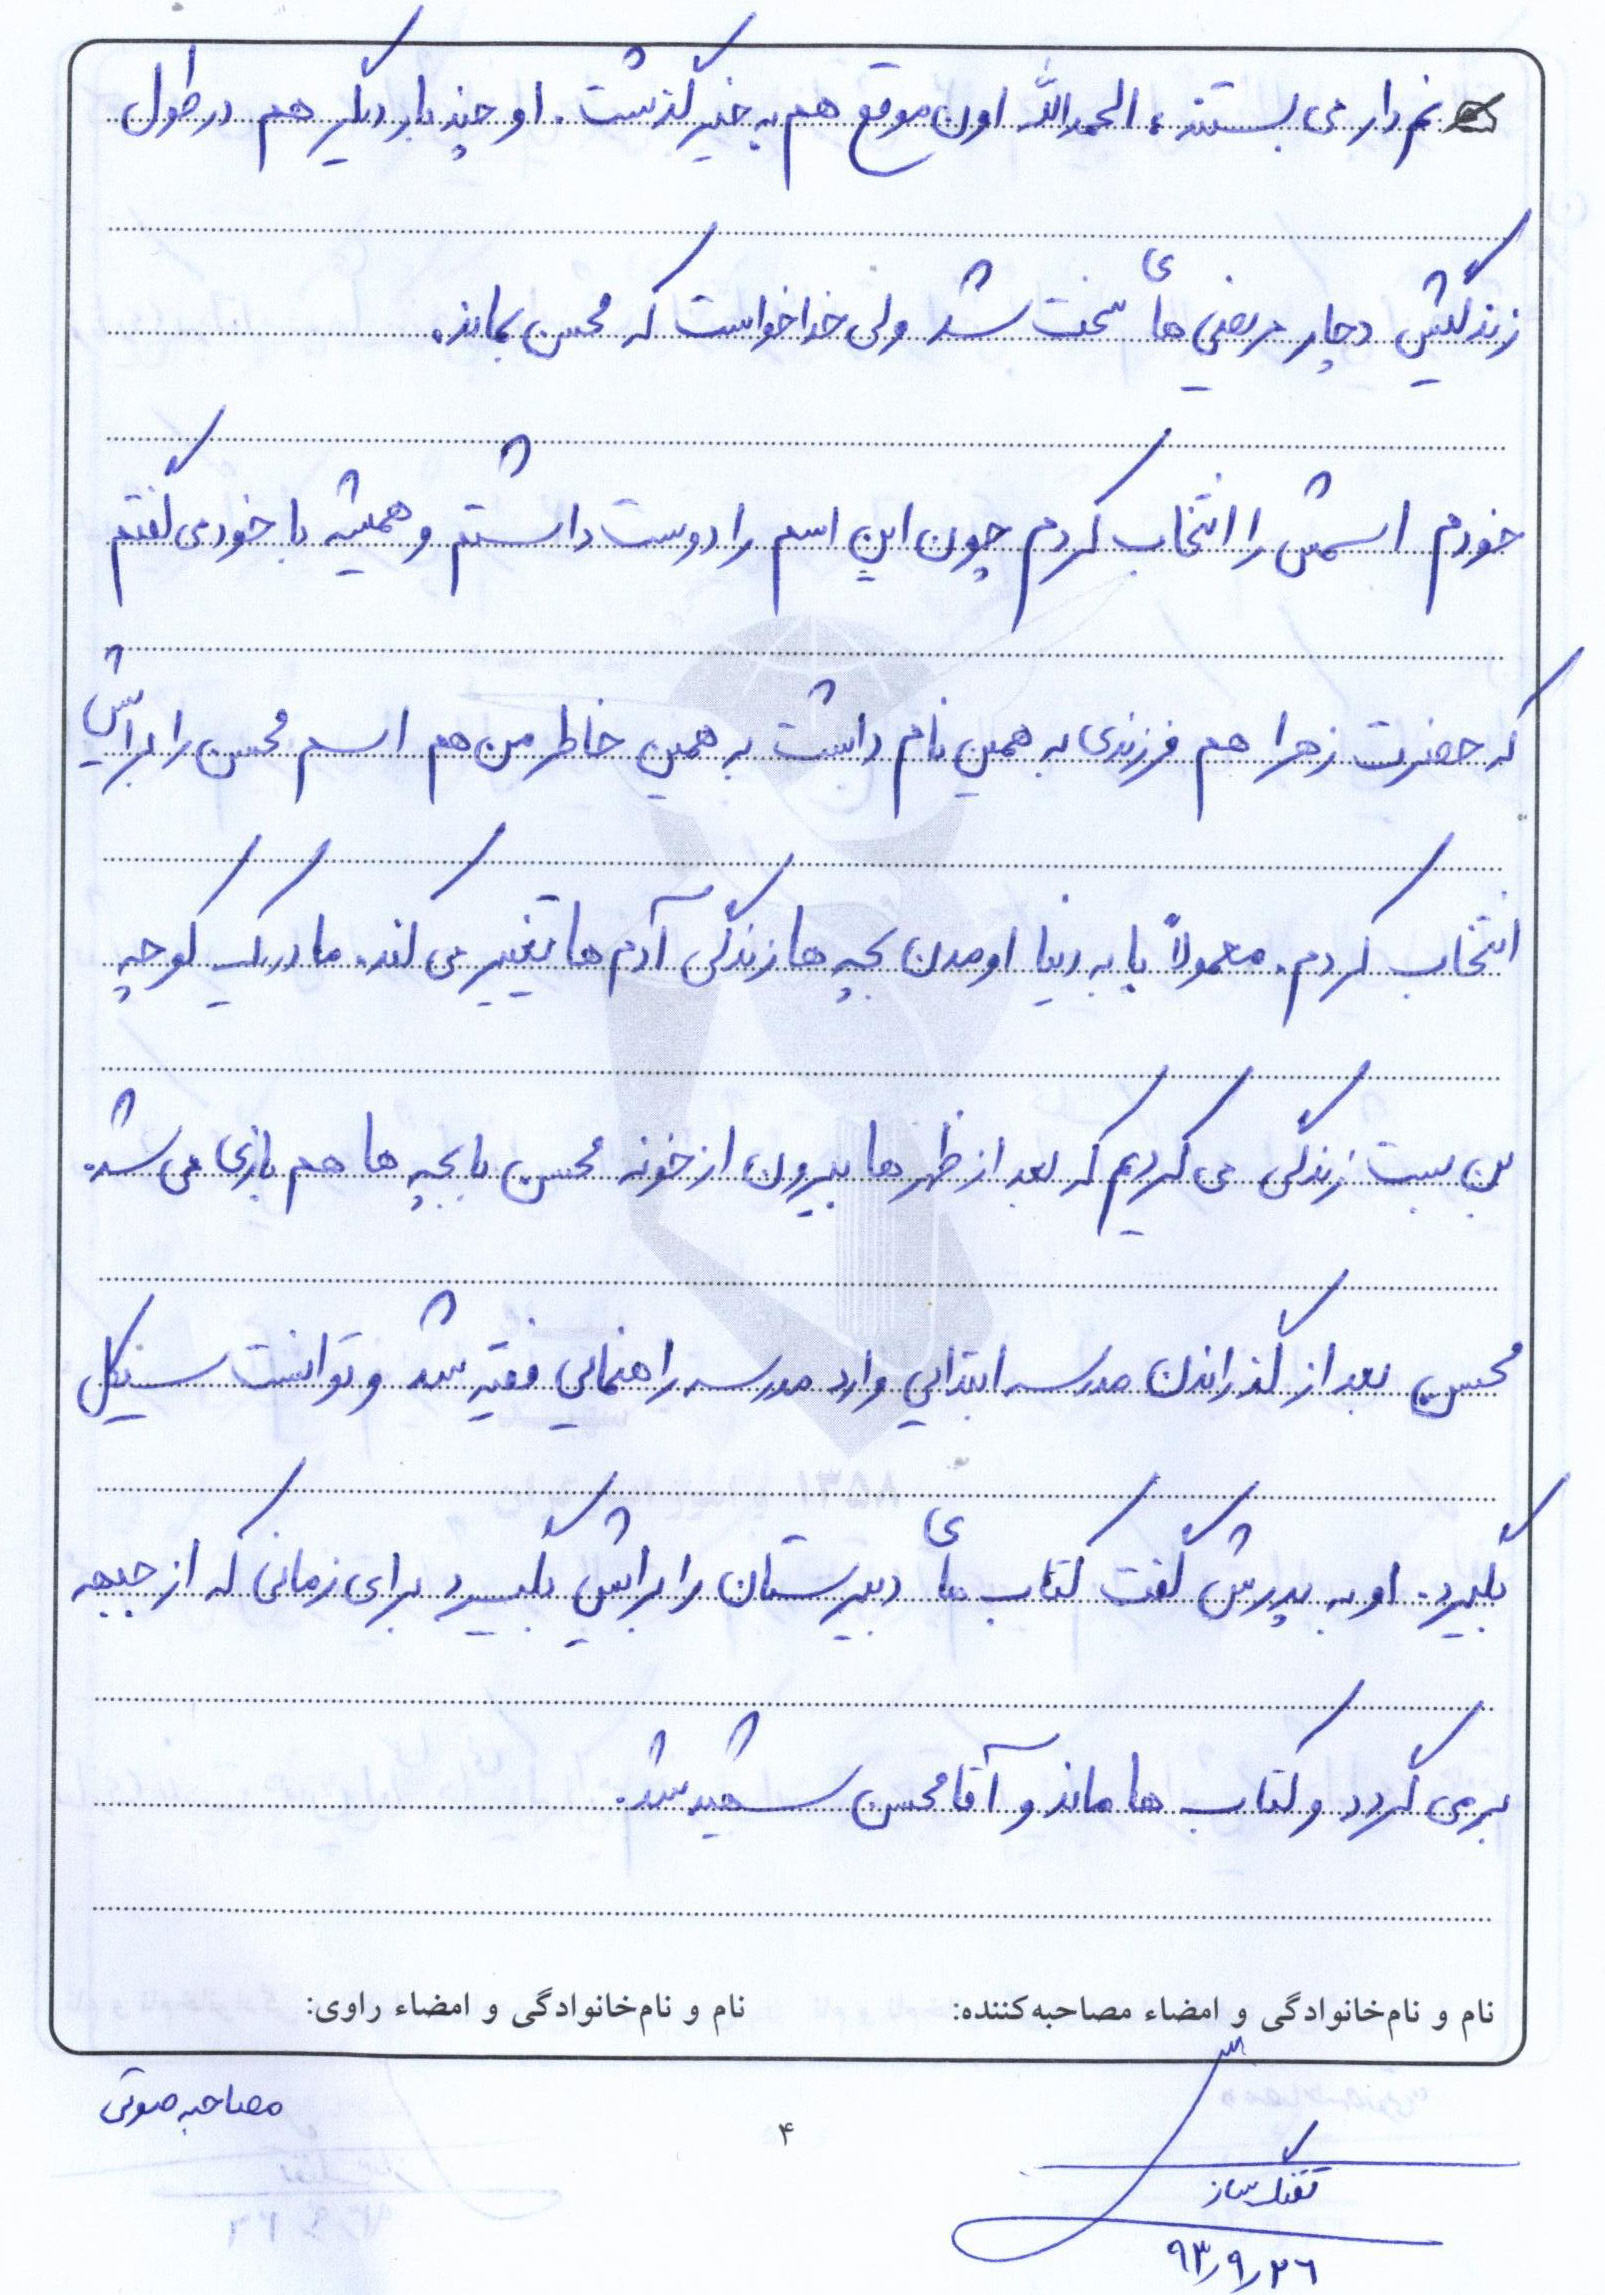 نم دار می بستند، الحمدالله اون موقع هم به خیر گذشت. او چند بار دیگر هم در طول
زندگیش دچار مریضی هائی سخت شد ولی خدا خواست که محسن بماند.
خودم اسمش را انتخاب کردم چون این اسم را دوست داشتم و همیشه با خود می گفتم
که حضرت زهرا هم فرزندی به همین نام داشت به همین خاطر من هم اسم محسن را برایش
انتخاب کردم. معمولاً با به دنیا اومدن بچه ها زندگی آدم ها تغییر می کند. ما در یک کوچه
بن بست زندگی می کردیم که بعد از ظهرها بیرون از خونه محسن با بچه ها هم بازی می شد.
محسن بعد از گذراندن مدرسه ابتدایی وارد مدرسه راهنمایی فقیر شد و توانست سیکل
بگیرد. او به پدرش گفت کتاب هائی دبیرستان را برایش بگیرد برای زمانی که از جبهه
برمی گردد و کتاب ها ماند و آقا محسن شهید شد.
نام و نام‌خانوادگی و امضاء مصاحبه‌کننده: نام و نام‌خانوادگی و امضاء راوی:
مصاحبه صوتی
۴
تفنگ ساز
۹۳/۹/۲۶
۱۳۵۸